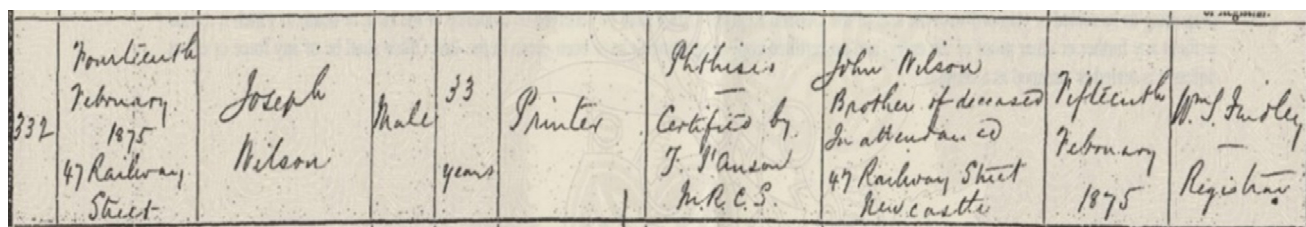 332
Fourteenth
February
1875
47 Railway
Street
Joseph
Wilson
Male
33
years
Printer
Phthesis
Certified by
T. I'Anson
M.R.C.S.
John Wilson
Brother of deceased
In attendance
47 Railway Street
Newcastle
Fifteenth
February
1875
Wm. S. Findley
Registrar